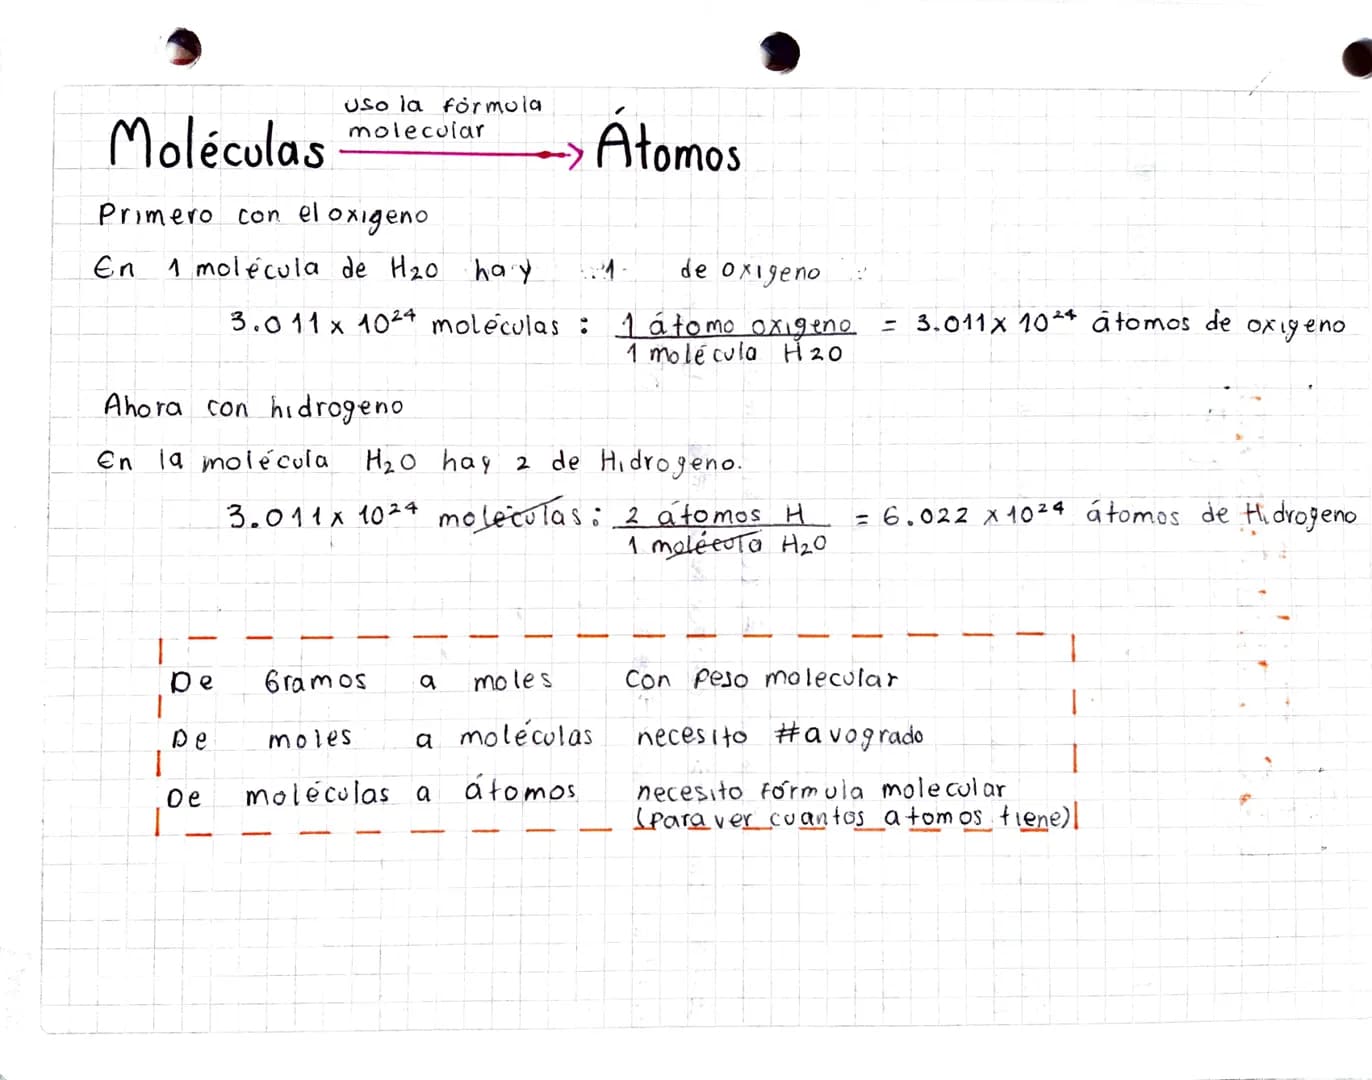 uso la fórmula
molecular
Moléculas → Átomos
Primero con el oxigeno
En 1 molécula de H2O hay 1 de oxigeno
3.011 x 10²⁴ moléculas : 1 átomo oxigeno = 3.011 x 10²⁴ átomos de oxigeno
1 molécula H2O
Ahora con hidrogeno
En la molécula H₂O hay 2 de Hidrogeno.
3.011 x 10²⁴ moleculas : 2 átomos H = 6.022 x 10²⁴ átomos de Hidrogeno
1 molécula H₂O
De Gramos a moles Con peso molecular
De moles a moléculas necesito #avogrado
De moléculas a átomos necesito fórmula molecular
(para ver cuantos atomos tiene)